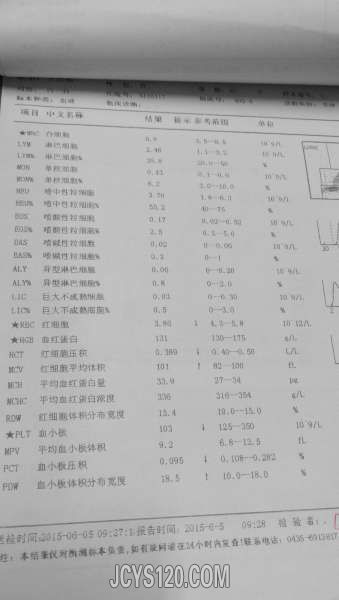 标本种类：血液 临床诊断：
项目 中文名称 结果 提示 参考范围 单位
★WBC 白细胞 10^9/L
LYM 淋巴细胞 2.46 1.1—3.2 10^9/L
LYM% 淋巴细胞% 20.0—50 %
MON 单核细胞 0.43 0.1—0.6 10^9/L
MON% 单核细胞% 6.2 3.0—10.0 %
NEU 嗜中性粒细胞 3.70 1.8—6.3 10^9/L
NEU% 嗜中性粒细胞% 40—75 %
EOS 嗜酸性粒细胞 0.17 0.02—0.52 10^9/L
EOS% 嗜酸性粒细胞% 2.5 %
BAS 嗜碱性粒细胞 0.02 0—0.06 10^9/L
BAS% 嗜碱性粒细胞% 0.3 0—1 %
ALY 异型淋巴细胞 0.06 0—0.20 10^9/L
ALY% 异型淋巴细胞% 0.8 0—2.0 %
LIC 巨大不成熟细胞 0.03 0—0.30 10^9/L
LIC% 巨大不成熟细胞% 0.5 0—3.0 %
★RBC 红细胞 3.86 ↓ 4.3—5.8 10^12/L
★HGB 血红蛋白 131 130—175 g/L
HCT 红细胞压积 0.389 ↓ 0.40—0.50 L/L
MCV 红细胞平均体积 101 ↑ 82—100 fL
MCH 平均血红蛋白量 33.9 27—34 pg
MCHC 平均血红蛋白浓度 336 316—354 g/L
RDW 红细胞体积分布宽度 13.4 10.0—15.0 %
★PLT 血小板 103 ↓ 125—350 10^9/L
MPV 平均血小板体积 9.2 6.8—13.5 fL
PCT 血小板压积 0.095 ↓ 0.108—0.282 %
PDW 血小板体积分布宽度 18.5 ↑ 10.0—18.0 %
送检时间:2015-06-05 09:27:1 报告时间：2015-6-5 09:28 检验者：
注：本结果仅对所测标本负责,如有疑问请在24小时内复查!联系电话：0435-6912617
JCYS120.COM